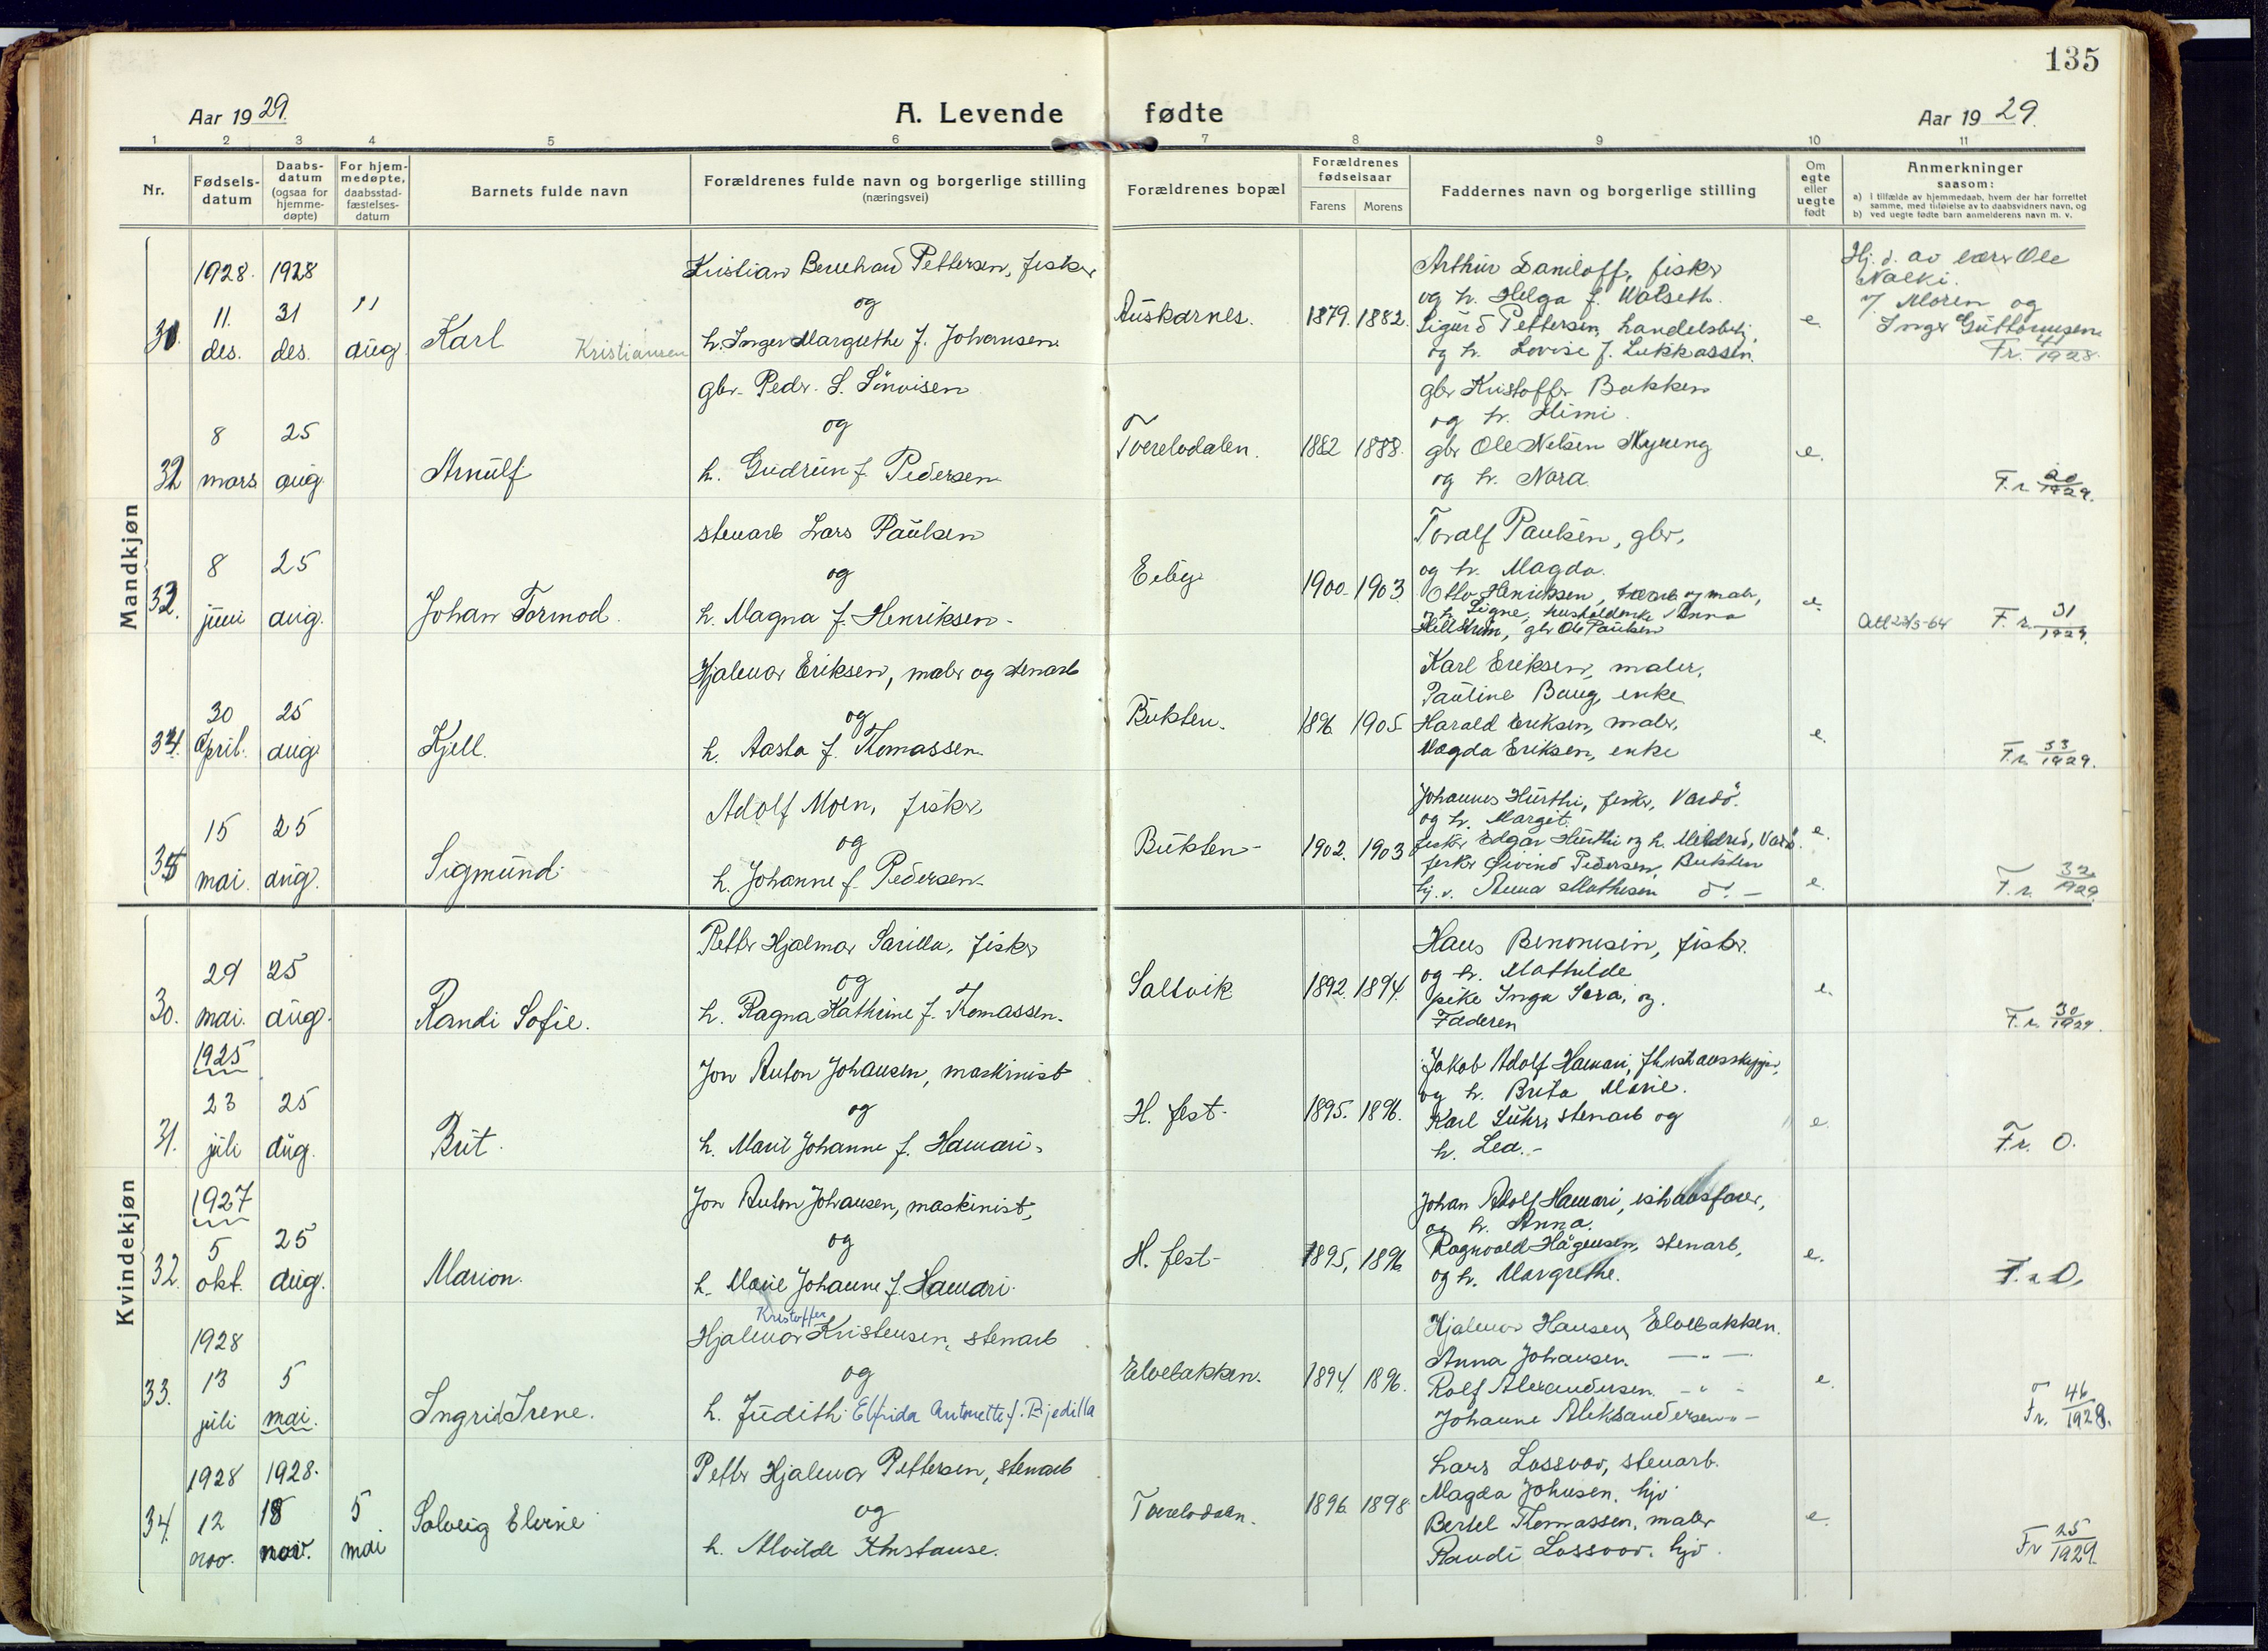 135
Aar 1929.
A. Levende fødte
Aar 1929.
1 2 3 4 5 6 7 8 9 10 11
Nr.
Fødsels-
datum
Daabs-
datum
(ogsaa for
hjemme-
døpte)
For hjem-
medøpte,
daabsstad-
fæstelses-
datum
Barnets fulde navn
Forældrenes fulde navn og borgerlige stilling
(næringsvei)
Forældrenes bopæl
Forældrenes
fødselsaar
Farens Morens
Faddernes navn og borgerlige stilling
Om
egte
eller
uegte
født
Anmerkninger
saasom:
a) i tilfælde av hjemmedaab, hvem der har forrettet
samme, med tilføielse av to daabsvidners navn, og
b) ved uegte fødte barn anmelderens navn m. v.
Mandkjøn
1928. 1928
11. 31 11
des. des. aug.
Karl Kristiansen
Kristian Bernhard Pettersen, fisker
og
h. Inger Margrethe f. Johansen
Auskarnes.
1879. 1882.
Arthur Daniloff, fisker
og h. Helga f. Walseth.
Sigurd Pettersen, handelsbetj.
og h. Lovise f. Lukkassen.
e.
Hj. d. av lærer Ole
Nalki.
v/ Moren og
Inger Guttormsen
Fr. 41/1928.
32
8 25
mars aug.
Arnulf
gbr. Peder. S. Sönvisen
og
h. Gudrun f. Pedersen
Tverelvdalen.
1882 1888.
gbr Kristoffer Bakken
og h. Mimi.
gbr Ole Nelsen Nyeng
og h. Nora.
e.
F.r. 20/1929.
33.
8 25
juni aug.
Johan Tormod.
stenarb Lars Paulsen
og
h. Magna f. Henriksen -
Eiby
1900. 1903.
Toralf Paulsen, gbr,
og h. Magda.
Otto Henriksen, maler,
og h. Signe, husholderske Anna
Hellstrøm, gbr Ole Paulsen
e.
F. r. 31/1929.
34.
30 25
April. aug.
Kjell.
Hjalmar Eriksen, maler og stenarb
og
h. Aasta f. Thomassen.
Bukten.
1896 1905
Karl Eriksen, maler,
Pauline Baug, enke
Harald Eriksen, maler,
Magda Eriksen, enke
e.
F.r. 33/1929.
35
15 25
mai. aug.
Sigmund.
Adolf Moen, fisker
og
h. Johanne f. Pedersen.
Bukten -
1902. 1903
Johannes Hurthi, fisker, Vardö.
og h. Margit.
fisker Edgar Hurthi og h. Mildred, Vardö.
fisker Eivind Pedersen, Bukten
hj.v. Anna Mathisen d.o -
e.
e.
F. r. 32/1929
Kvindekjøn
30.
29 25
mai. aug.
Randi Sofie.
Petter Hjalmar Sarilla, fisker
og
h. Ragna Kathrine f. Thomassen.
Saltvik
1892. 1894.
Hans Benonisen, fisker.
og h. Mathilde
pike Inga Sara, og.
Faderen
e.
F. r. 30/1929.
1925
31.
23 25
juli aug.
Brit.
Jon Anton Johansen, maskinist
og
h. Marie Johanne f. Hamari.
H. fest -
1895. 1896.
Jakob Adolf Hamari, ishavsskipper,
og h. Brita Marie.
Karl Suhr, stenarb og
h. Lea. -
e.
F.r. 0.
1927
32.
5 25
okt. aug.
Marion.
Jon Anton Johansen, maskinist,
og
h. Marie Johanne f. Hamari.
H. fest -
1895, 1896
Johan Adolf Hamari, ishavsfarer,
og h. Anna.
Ragnvald Hågensen, stenarb,
og h. Margrethe.
e.
F. r. 0.
1928
33.
13 5
juli mai.
Ingrid Irene.
Kristoffer
Hjalmar Kristensen, stenarb
og
h. Judith Elfrida Antonette f. Bjedilla
Elvebakken.
1894. 1896.
Hjalmar Hansen, Elvebakken.
Anna Johansen. — " —
Rolf Alexandersen. - " -
Johanne Aleksandersen " -
e.
Fr. 46/1928.
1928 1928.
34.
12 18 5
nov. nov. mai
Solveig Elvine
Petter Hjalmar Pettersen, stenarb
og
h. Alvilde Konstanse.
Tverelvdalen.
1896 1898
Lars Lassvar, stenarb.
Magda Johnsen. hjv
Bertel Thomassen, maler
Randi Lassvar. hjv.
e.
Fr 25/1929.